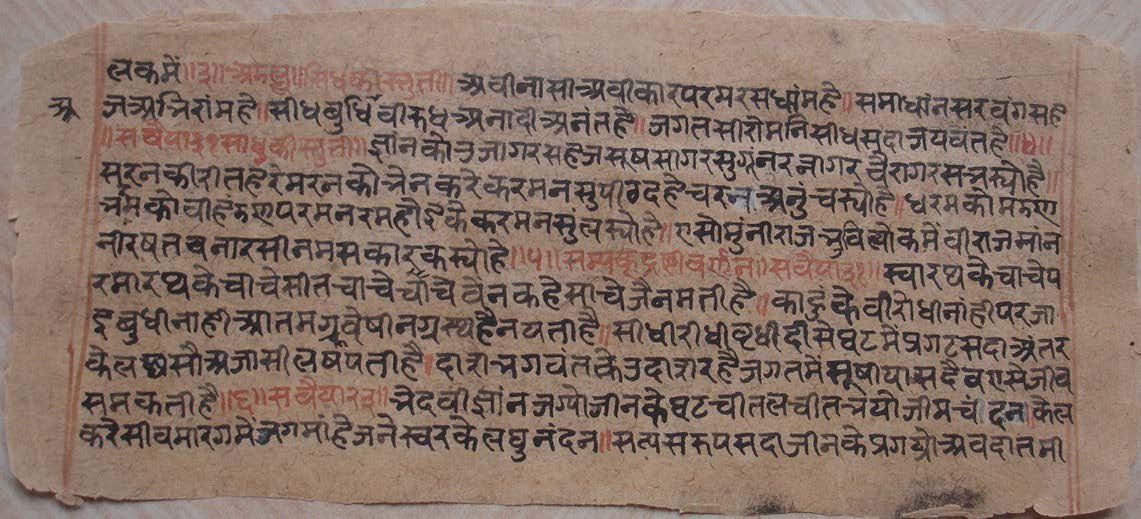 लकमें॥३॥अथ ॥सिधकी स्तुती॥अवीनासीअवीकारपरमरसधांमहै॥समाधांनसरवंगसहे
जअभिरांमहै॥सीधबुधिवीरुधअनादीअनंतहै॥जगतसीरोमनिसीधसदाजयवंतहै॥४॥
॥सवैया३१साधुकी स्तुती॥ज्ञांनकोउजागरसहेजसूषसागरसुगुंनरत्नागरवैरागरसभस्योहै॥
सरनकीरीतहरेमरनकौभेनकरेकरमनसुपीठदेहेचरनअनुंचस्योहै॥धरमकोमंडण
भर्मकोवीहंडणपरमनरमहोइकेकरमनसुलस्योहै॥एसोमुंनीराजभुविलोकमेंवीराजमांन
नीरषतबनारसीनमसकारकस्योहे॥५॥सम्यकद्रष्टीवर्णन॥सवैया३१॥स्वारथकेचाचेप
रमारथकेचाचेसीतचाचेचाचेवेनकहेसाचेजैनमतीहै॥काहुंकेवीरोधीनांहीपरजा
इबुधीनाहीआतमगवेषीनग्रस्थहैनयतीहै॥सीधीरीधीवृधीदीसेघटमेंप्रगटसदाअंतर
केलछसौअजासीलषपतीहै॥दासभगवंतकेउदासरहैजगतमेंसूषीयासदैवएसेजीव
समकतीहै॥६॥सवैया२३॥भेदवीज्ञांनजग्योजीनकेघटचीतलचीतभयोजीमचंदन॥केल
करेसीवमारगमेंजगमांहेजनेस्वरकेलघुनंदन॥सत्यसरुपसदाजीनकेप्रगट्योअवदातमी